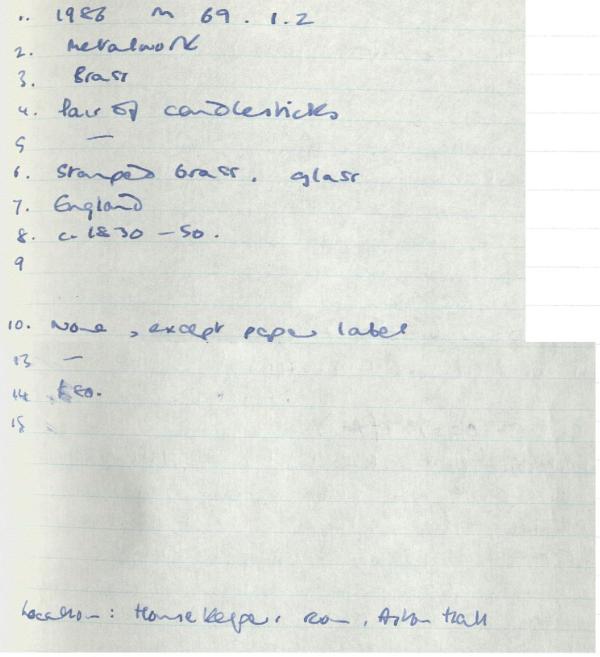 1. 1986 M 69.1.2
2. Metalwork
3. Brass
4. Pair of candlesticks
5 —
6. Stamped brass. glass
7. England
8. c. 1830 – 50.
9
10. None, except paper label
13 —
14 £80.
15
Location: Housekeeper's room, Aston Hall